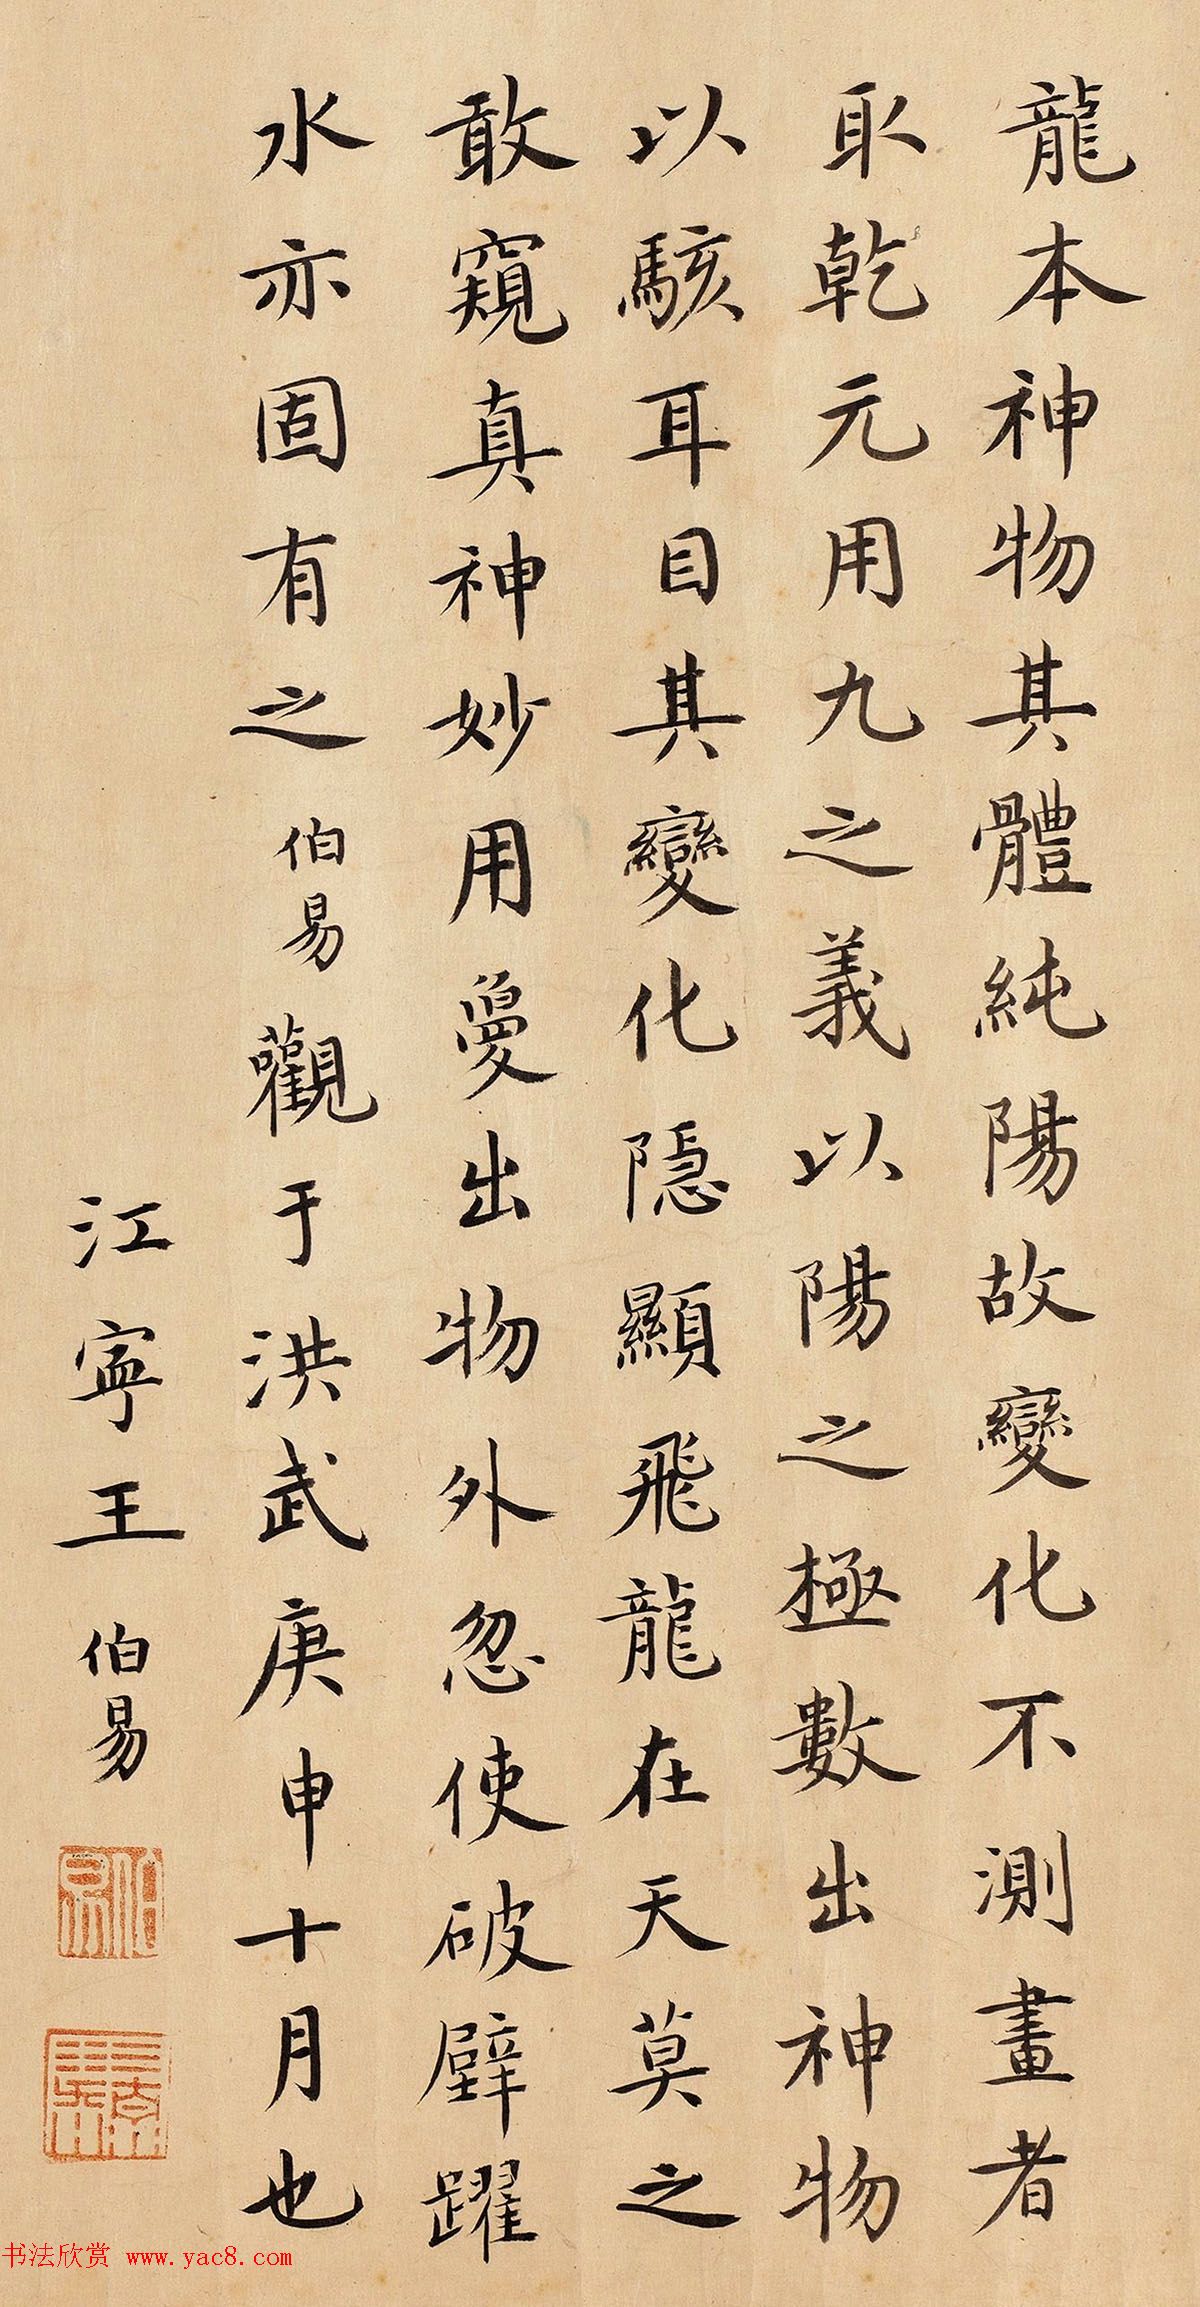 龍本神物其體純陽故變化不測畫者
取乾元用九之義以陽之極數出神物
以駭耳目其變化隱顯飛龍在天莫之
敢窺真神妙用𠭇出物外忽使破壁躍
水亦固有之伯易觀于洪武庚申十月也
江寧王伯易
伯易
书法欣赏 www.yac8.com